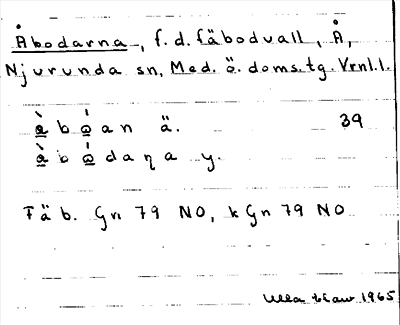 Åbodarna, f.d. fäbodvall, Å,
Njurunda sn, Med. ö. doms.tg. Vrnl.l.
àbo̩an ä. 39
àbo̩daɳa y.
Fäb. Gn 79 NO, k Gn 79 NO
Ulla 1965